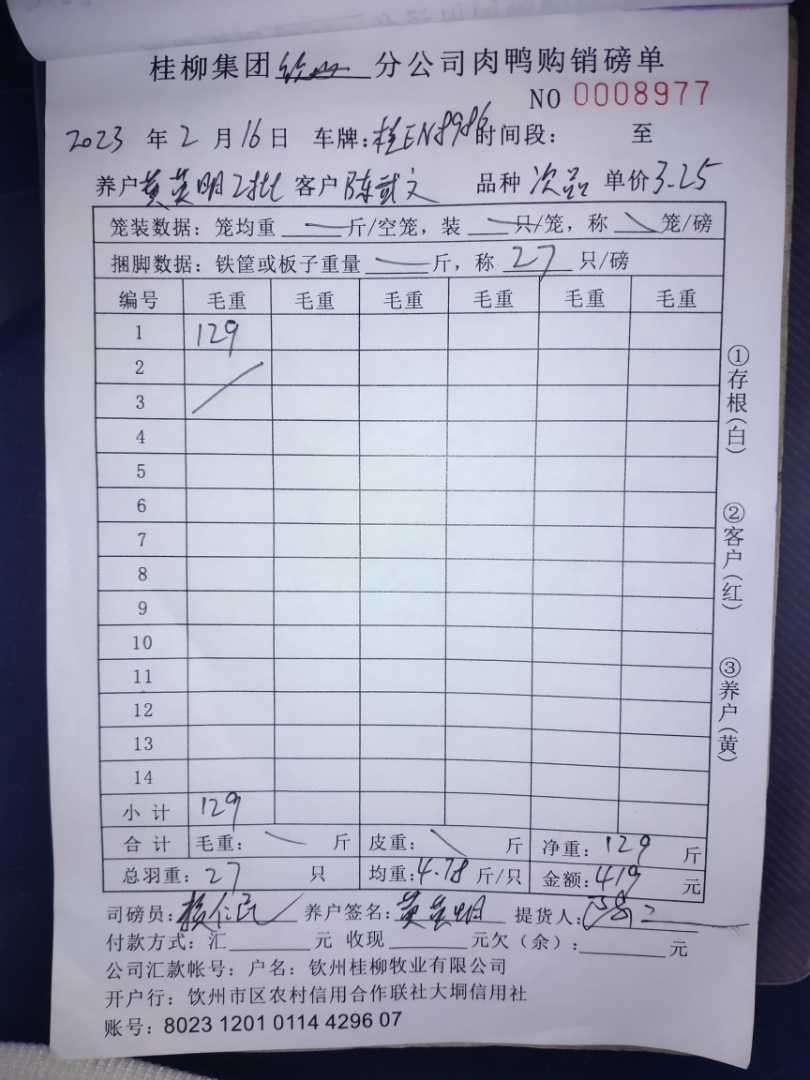 桂柳集团 分公司肉鸭购销磅单
NO 0008977
2023 年 2 月 16 日 车牌:桂EN8986 时间段: 至
养户 黄英明2批 客户 陈武文 品种 次品 单价 3.25
笼装数据:笼均重 斤/空笼,装 只/笼,称 笼/磅
捆脚数据:铁筐或板子重量 斤,称 27 只/磅
编号 毛重 毛重 毛重 毛重 毛重 毛重
1 129
2
3
4
5
6
7
8
9
10
11
12
13
14
小计 129
合计 毛重: 斤 皮重: 斤 净重:129 斤
总羽重:27 只 均重:4.78 斤/只 金额:419 元
司磅员: 养户签名:黄英明 提货人:
付款方式:汇 元 收现 元欠(余): 元
公司汇款帐号:户名:钦州桂柳牧业有限公司
开户行:钦州市区农村信用合作联社大垌信用社
账号:8023 1201 0114 4296 07
①存根(白)
②客户(红)
③养户(黄)